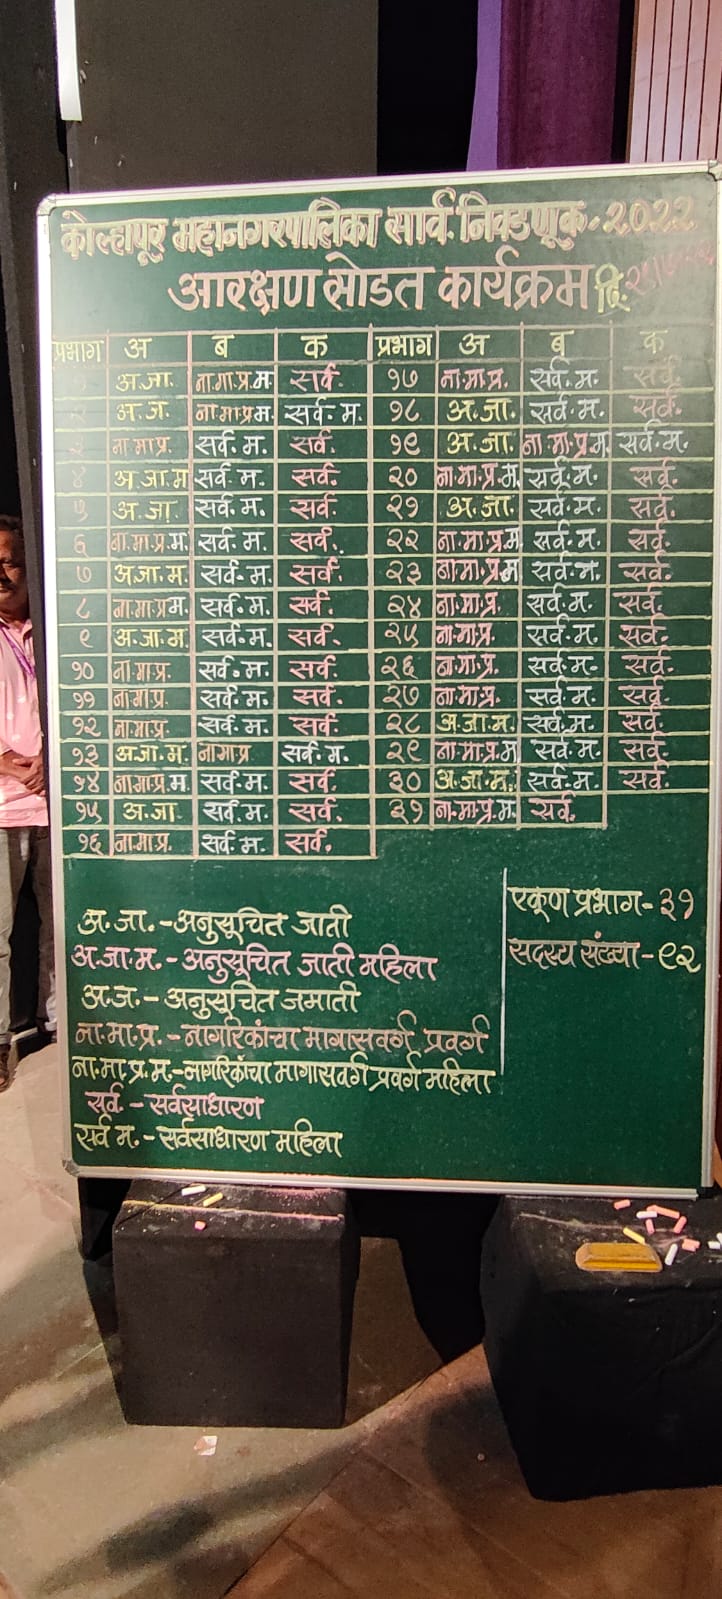 कोल्हापूर महानगरपालिका सार्व. निवडणूक-२०२२
आरक्षण सोडत कार्यक्रम दि.
प्रभाग अ ब क प्रभाग अ ब क
१ अ.जा. ना.मा.प्र.म. सर्व. १७ ना.मा.प्र. सर्व.म. सर्व.
२ अ.ज. ना.मा.प्र.म. सर्व.म. १८ अ.जा. सर्व.म. सर्व.
३ ना.मा.प्र. सर्व.म. सर्व. १९ अ.जा. ना.मा.प्र.म. सर्व.म.
४ अ.जा.म सर्व.म. सर्व. २० ना.मा.प्र.म. सर्व.म. सर्व.
५ अ.जा. सर्व.म. सर्व. २१ अ.जा. सर्व.म. सर्व.
६ ना.मा.प्र.म. सर्व.म. सर्व. २२ ना.मा.प्र.म सर्व.म. सर्व.
७ अ.जा.म. सर्व.म. सर्व. २३ ना.मा.प्र.म सर्व.म. सर्व.
८ ना.मा.प्र.म. सर्व.म. सर्व. २४ ना.मा.प्र. सर्व.म. सर्व.
९ अ.जा.म. सर्व.म. सर्व. २५ ना.मा.प्र. सर्व.म. सर्व.
१० ना.मा.प्र. सर्व.म. सर्व. २६ ना.मा.प्र. सर्व.म. सर्व.
११ ना.मा.प्र. सर्व.म. सर्व. २७ ना.मा.प्र. सर्व.म. सर्व.
१२ ना.मा.प्र. सर्व.म. सर्व. २८ अ.जा.म. सर्व.म. सर्व.
१३ अ.जा.म. ना.मा.प्र सर्व.म. २९ ना.मा.प्र.म सर्व.म. सर्व.
१४ ना.मा.प्र.म. सर्व.म. सर्व. ३० अ.जा.म. सर्व.म. सर्व.
१५ अ.जा सर्व.म. सर्व. ३१ ना.मा.प्र.म. सर्व.
१६ ना.मा.प्र. सर्व.म. सर्व.
अ.जा. - अनुसूचित जाती
अ.जा.म. - अनुसूचित जाती महिला
अ.ज. - अनुसूचित जमाती
ना.मा.प्र. - नागरिकांचा मागासवर्ग प्रवर्ग
ना.मा.प्र.म. - नागरिकांचा मागासवर्ग प्रवर्ग महिला
सर्व. - सर्वसाधारण
सर्व म. - सर्वसाधारण महिला
एकूण प्रभाग - ३१
सदस्य संख्या - ९२